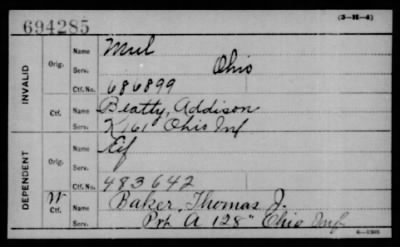 694285
(3—H—4)
INVALID
Orig.
Name Mul
Serv. Ohio
Ctf. No. 686899
Ctf.
Name Beatty, Addison
Serv. K 161" Ohio Inf
DEPENDENT
Orig.
Name
Serv.
Ctf. No. 483642
W
Ctf.
Name Baker, Thomas J.
Serv. A 128" Ohio Inf